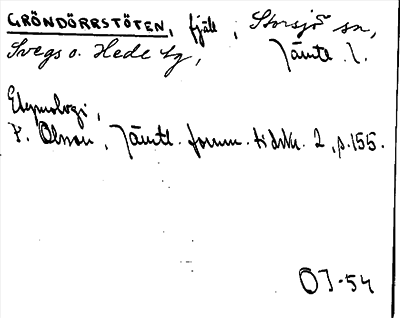 GRÖNDÖRRSTÖTEN, fjäll, Storsjö sn,
Svegs o. Hede tg, Jämtl. l.
Etymologi,
P. Olsson, Jämtl. fornm. tidskr. 2, p. 155.
OJ-54